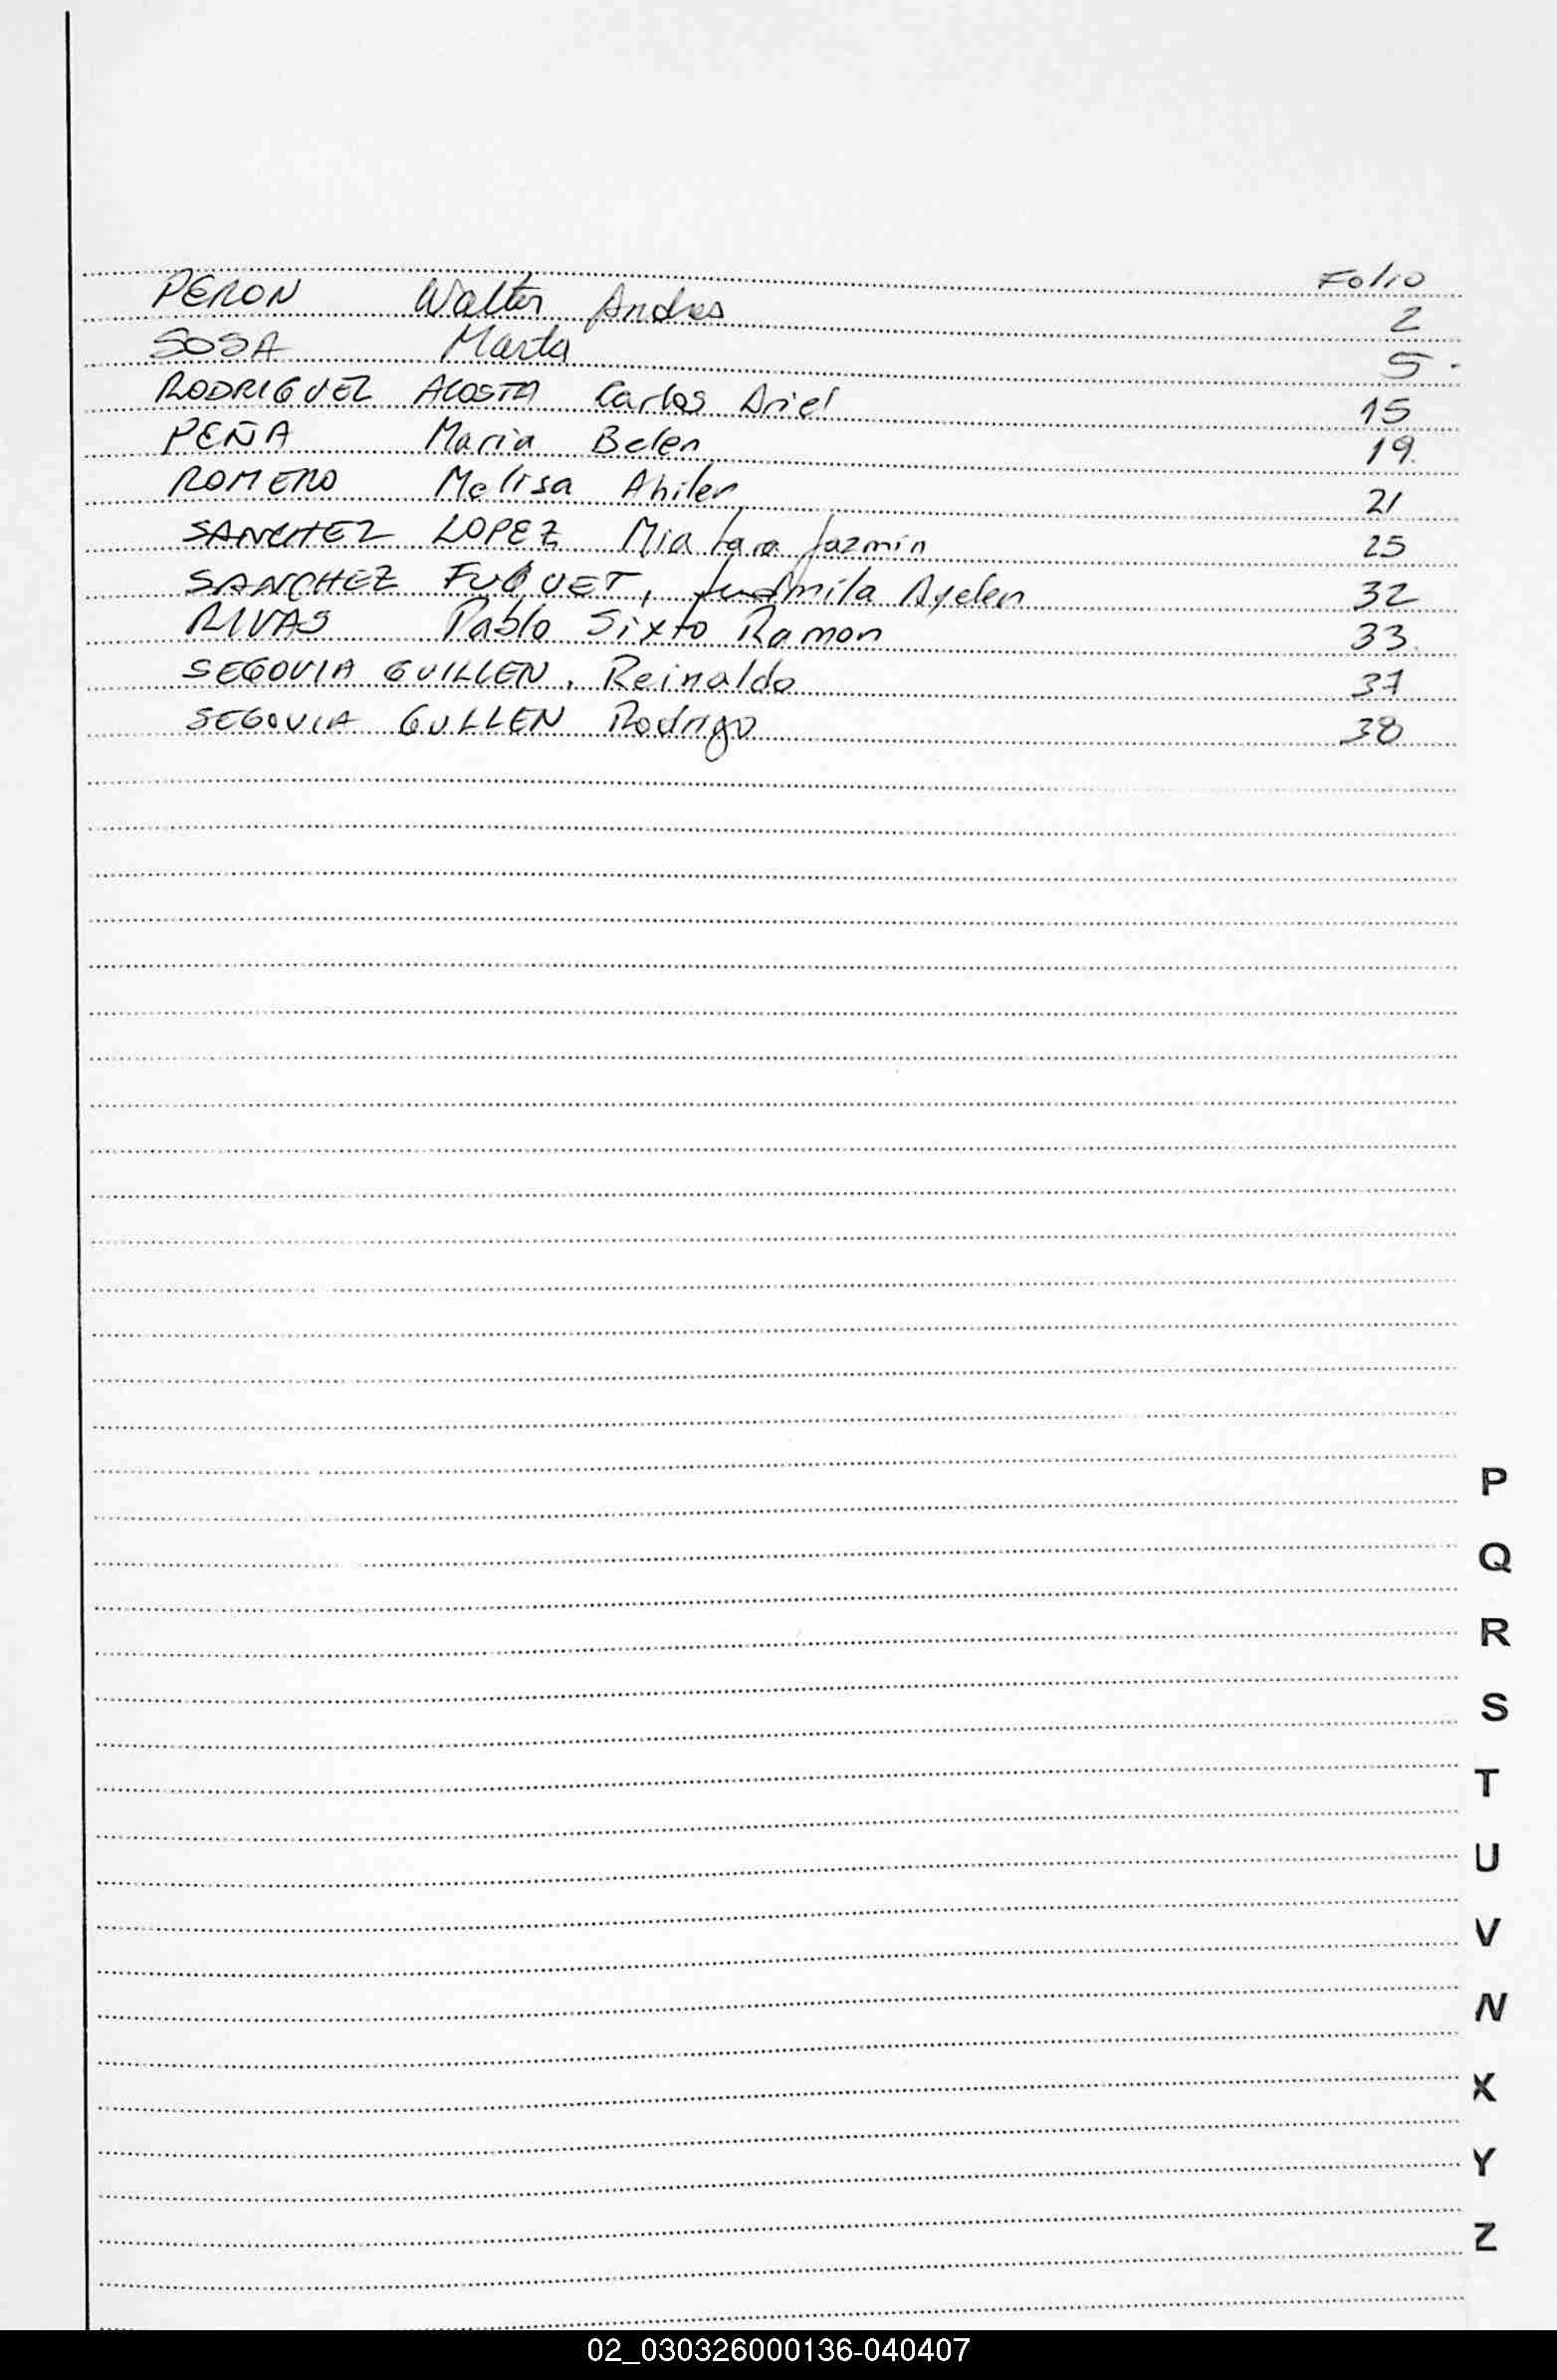 Folio
PERON Walter Andres 2
SOSA Marta 5.
RODRIGUEZ ACOSTA Carlos Ariel 15
PEÑA Maria Belen 19.
ROMERO Melisa Ahilen 21
SANCHEZ LOPEZ Mia Jazmin 25
SANCHEZ FUQUET, Ludmila Ayelen 32
RIVAS Pablo Sixto Ramon 33.
SEGOVIA GUILLEN, Reinaldo 37
SEGOVIA GULLEN Rodrigo 38
P
Q
R
S
T
U
V
X
Y
Z
02_030326000136-040407